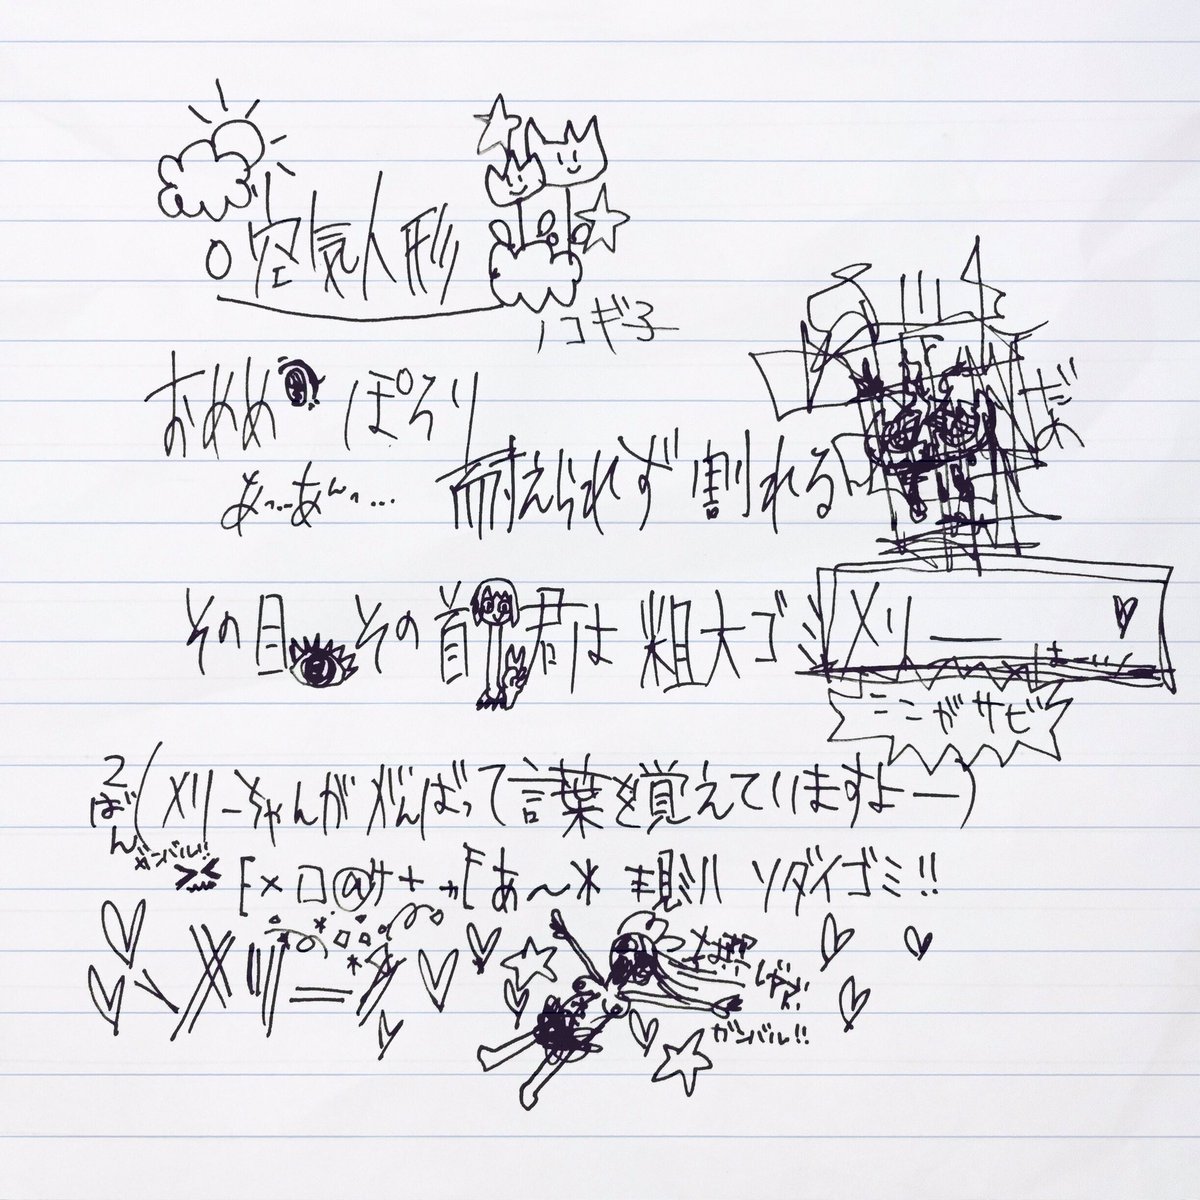 ○空気人形
ノコギ子
おめめ ぽろり
あっ…あんっ… 耐えられず割れる
その目 その首 君は 粗大ゴミ
メリー
ここがサビ
2ばん (メリーちゃんががんばって言葉を覚えていますよー)
ガンバル!!
ソダイゴミ!!
メリー
ガンバル!!